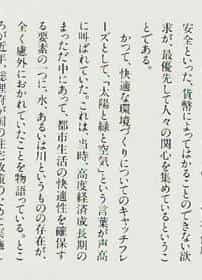 安全といった、貨幣によってはかることのできない欲
求が、最優先して人々の関心を集めているというこ
とである。
かつて、快適な環境づくりについてのキャッチフレ
ーズとして、「太陽と緑と空気」という言葉が声高
に叫ばれていた。これは、当時、高度経済成長期の
まっただ中にあって、都市生活の快適性を確保す
る要素の一つに、水、あるいは川というものの存在が、
全く慮外におかれていたことを物語っている。とこ
ろが近年、総理府が国の住宅政策のために実施し